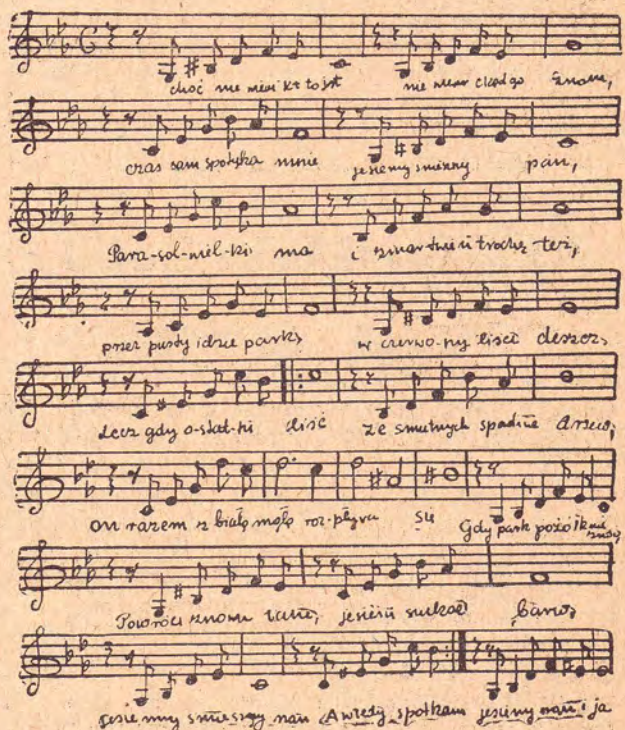 choć nie wiem kto jest nie wiem skąd go znam,
czas sam spotyka mnie jesienny smieszny pan,
Para-sol-miel-ki ma i zmartwień trochę też,
przez pusty idzie park, w czerwo-ny liści deszcz,
Lecz gdy o-stat-ni liść ze smutnych spadnie drzew,
on razem z białą mgłą roz-pływa się Gdy park pożółknie
Powróci znowu tutaj, jesieni szukać barw,
jesienny smieszny pan A wtedy spotkam jesienny pan i ja